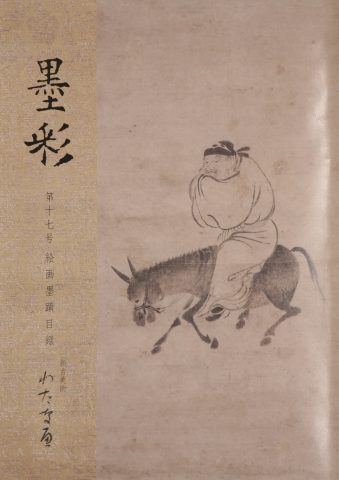 墨彩
第十七号 絵画墨蹟目録
古美術
わたなべ